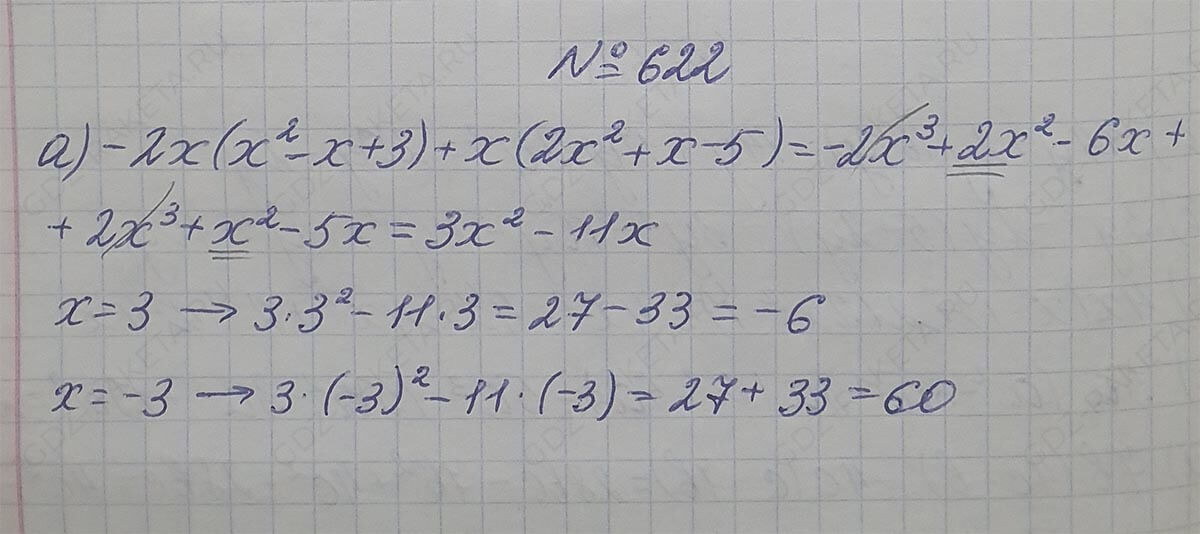 № 622
а) -2x(x²-x+3)+x(2x²+x-5)=-2x³+2x²-6x+
+2x³+x²-5x=3x²-11x
x=3 → 3·3²-11·3=27-33=-6
x=-3 → 3·(-3)²-11·(-3)=27+33=60